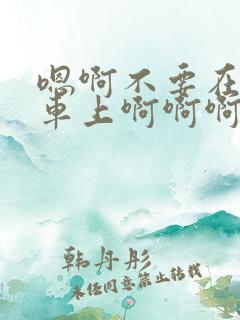 嗯啊不要在
車上啊啊啊
韩丹彤
未经同意禁止转载